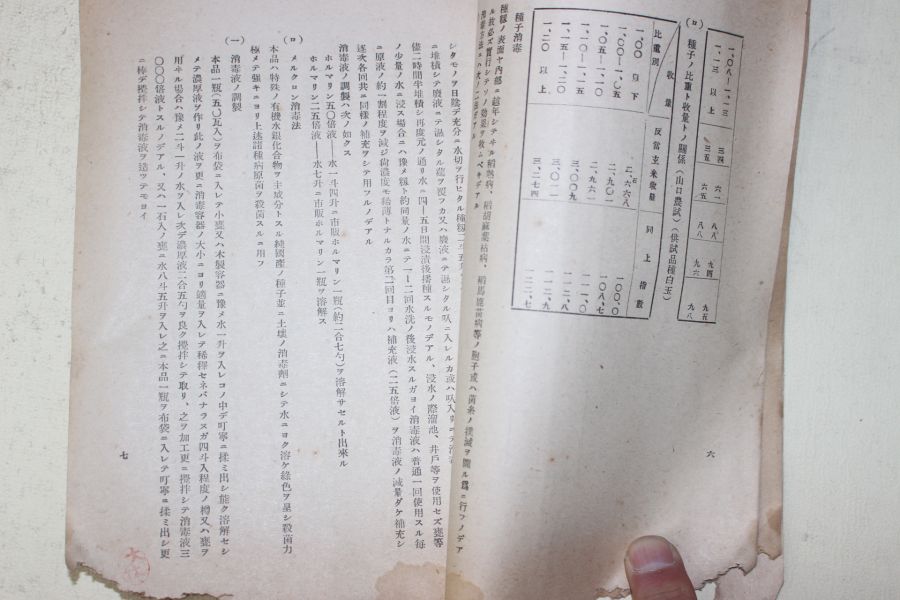 一、〇八―一、一三 三四 六一 八八 九四 九五
一、一三以上 三五 六五 八八 九六 九八
(ロ) 種子ノ比重ト収量トノ關係(山口農試)(供試品種白玉)
比重別 収量 反當玄米収量 同上指數
一、〇〇以下 二、六六八石 一〇〇、〇
一、〇〇―一、〇五 二、九〇一 一〇八、七
一、〇五―一、一五 三、〇〇九 一一二、八
一、一五―一、二〇 三、〇一二 一一二、九
一、二〇以上 三、二七四 一二二、七
種子消毒
種籾ノ表面ヤ内部ニ越年シテヰル稻熱病、稻胡麻葉枯病、稻馬鹿苗病等ノ胞子或ハ菌糸ノ撲滅ヲ圖ル爲ニ行フノデア
ル故必ズ實行シテソノ効果ヲ收ムベキデアル
六
シタモノヲ日陰デ充分ニ水切ヲ行ヒタル種籾
ニ堆積シテ廢液ニテ温シタル蓆ヲ覆フカ又ハ廢液ニテ温シタル叺ニ入レルカ或ハ叺入
儘二時間半堆積シ再度元ノ通リ水ニ四―五日間浸漬後播種スルモノデアル、浸水ノ際溜池、井戸等ヲ使用セズ甕等
ノ少量ノ水ニ浸ス場合ニハ豫メ籾ト約同量ノ水ニテ一―二回水洗ノ後浸水スルガヨイ消毒液ハ普通一回使用スル毎
ニ原液ノ約一割程度ヲ減ジ尚濃度モ稀薄トナルカラ第二回目ヨリハ補充液(二五倍液)ヲ消毒液ノ減量ダケ補充シ
逐次各回共ニ同樣ノ補充ヲシテ用フルノデアル
消毒液ノ調製ハ次ノ如クス
ホルマリン五〇倍液―水一斗四升ニ市販ホルマリン一瓶(約二合七勺)ヲ溶解サセルト出來ル
ホルマリン二五倍液―水七升ニ市販ホルマリン一瓶ヲ溶解ス
(ロ) メルクロン消毒法
本品ハ特殊ノ有機水銀化合物ヲ主成分トスル純國産ノ種子並ニ土壤ノ消毒劑ニシテ水ニヨク溶ケ綠色ヲ呈シ殺菌力
極メテ強キニヨリ上述諸種病原菌ヲ殺菌スルニ用フ
(一) 消毒液ノ調製
本品一瓶(五〇瓦入)ヲ布袋ニ入レテ小甕又ハ木製容器ニ豫メ水一升ヲ入レコノ中デ叮寧ニ揉ミ出シ能ク溶解セシ
メテ濃厚液ヲ作リ此ノ液ヲ更ニ消毒容器ノ大小ニヨリ適量ヲ入レテ稀釋セネバナラスガ四斗入程度ノ樽又ハ甕ヲ
用キル場合ハ豫メ二斗一升ノ水ヲ入レ次デ濃厚液二合五勺ヲ良ク攪拌シテ取リ、之ヲ加工更ニ攪拌シテ消毒液三
〇〇〇倍液トスルノデアル、又ハ一石入ノ甕ニ水八斗五升ヲ入レ之ニ本品一瓶ヲ布袋ニ入レテ叮寧ニ揉ミ出シ更
ニ棒デ攪拌シテ消毒液ヲ造ツテモヨイ
七